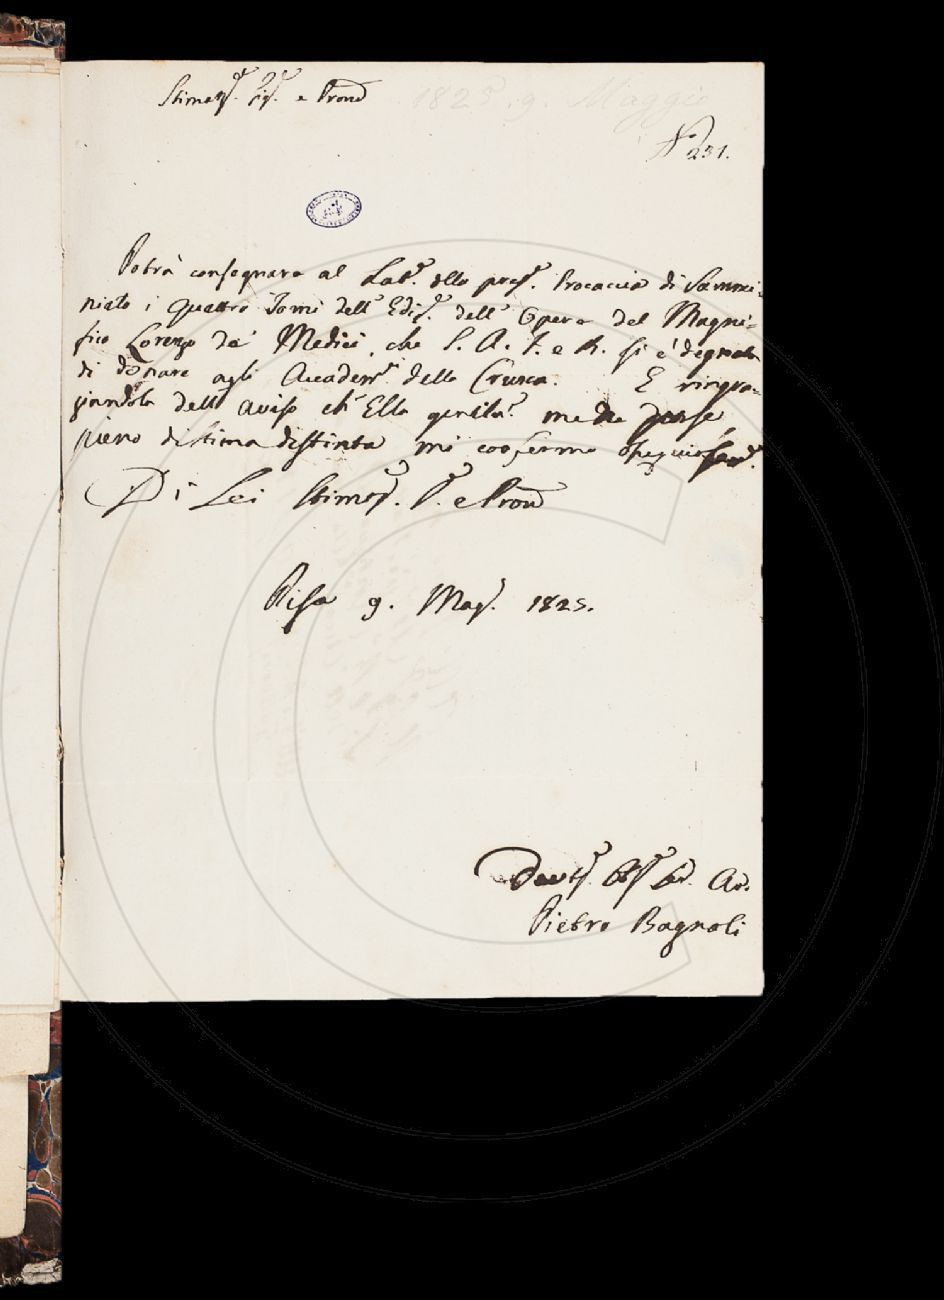 Stimatiss. Sig. e Pron
1825. 9. Maggio
N 231.
Potrà consegnare al Lat. dello pres. Procaccia di Sammi-
niato i quattro Tomi dell' Ediz. dell' Opere del Magni-
fico Lorenzo de' Medici, che S. A. I. e R. si è degnata
di donare agli Accadem. della Crusca. E ringra-
ziandola dell' aviso ch' Ella gentilm. me ne porse,
pieno di stima distinta mi confermo
Di Lei Stimatiss. S. e Pron
Pisa 9. Mag. 1825.
Devotiss. Obbl. Ser. Ar.
Pietro Bagnoli